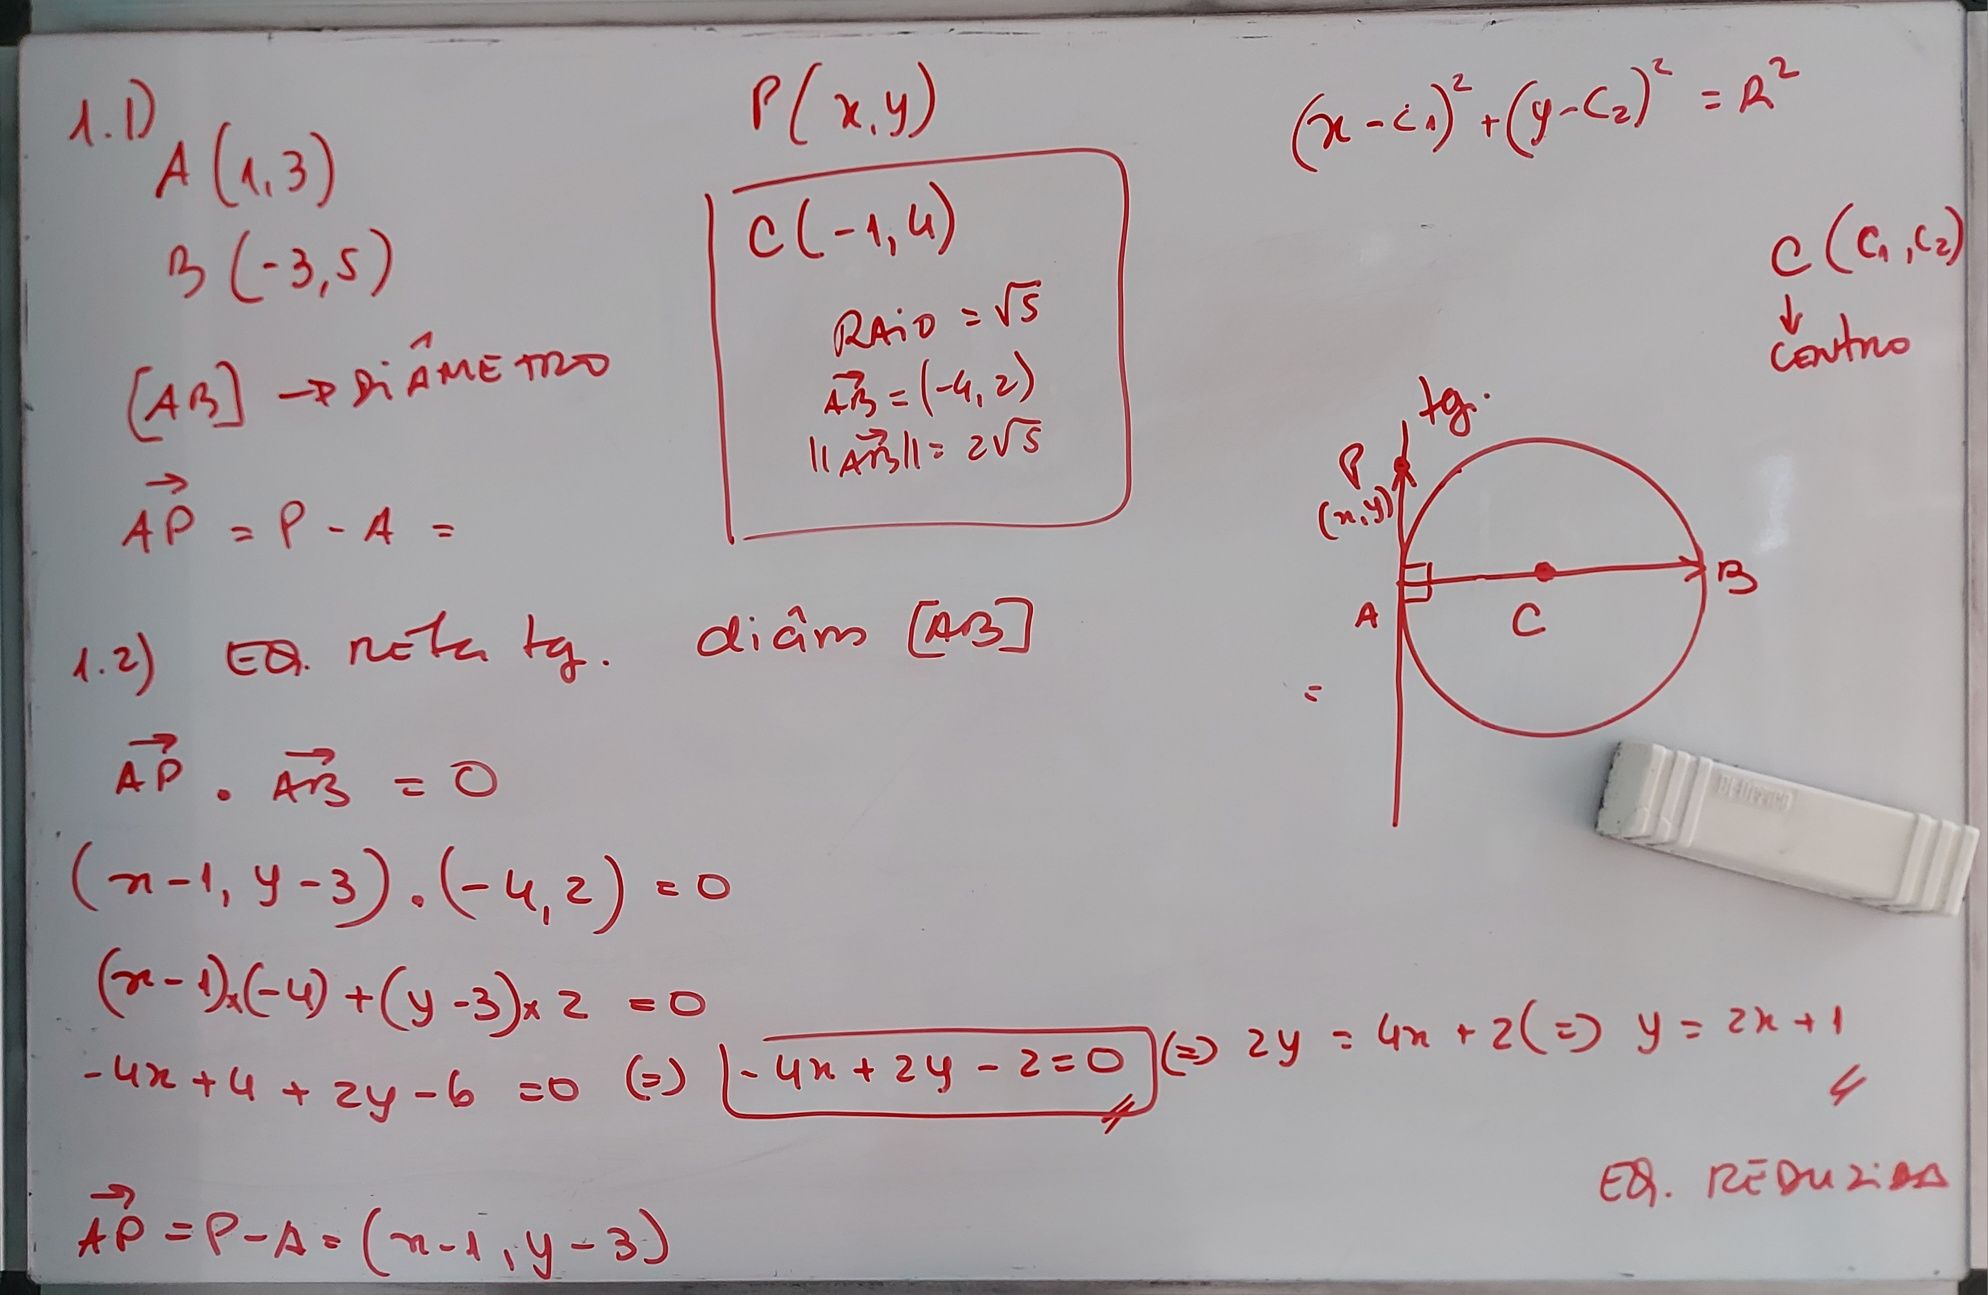 1.1)
A (1,3)
B (-3,5)
[AB] → DIÂMETRO
AP = P - A =
P(x,y)
C(-1,4)
RAIO = √5
AB = (-4,2)
||AB|| = 2√5
(x-c₁)² + (y-c₂)² = R²
C (c₁,c₂)
↓
centro
tg.
P
(x,y)
A
C
B
=
1.2) EQ. reta tg. diâm [AB]
AP . AB = 0
(x-1, y-3) . (-4,2) = 0
(x-1)×(-4) + (y-3)× 2 = 0
-4x+4 + 2y-6 =0 (=) -4x + 2y - 2=0 (=) 2y = 4x + 2 (=) y = 2x+1
EQ. REDUZIDA
AP = P-A = (x-1, y-3)